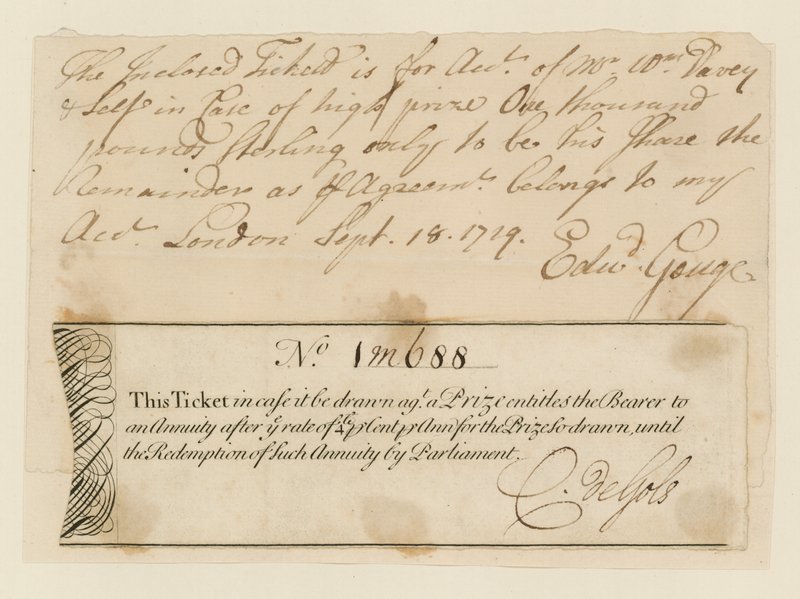 The Inclosed Tickett is for Acct. of Mr. Wm. Davey
& Self in Case of high prize One thousand
pounds Sterling only to be his Share the
Remainder as Agreemt. belongs to my
Acct. London Sept. 18. 1729.
Edwd. Gouge
No 1m688
This Ticket in case it be drawn agt. a Prize entitles the Bearer to
an Annuity after ye rate of pr Cent pr Ann for the Prize so drawn, until
the Redemption of such Annuity by Parliament.
C. deGols